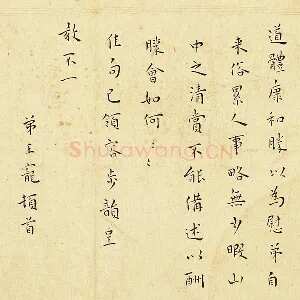 道體康和勝以為慰弟自
來俗累人事略無少暇山
中之清賞不能備述以酬
勝會如何〻〻
佳句已領容步韻呈
教不一
弟王寵頓首
Shufawang.CN